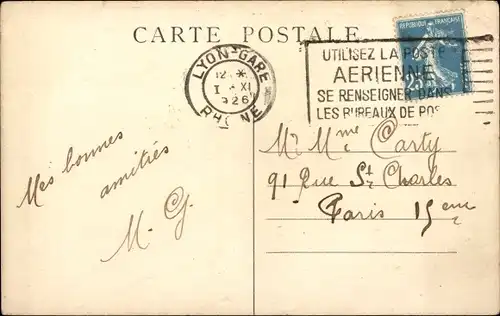 CARTE POSTALE
LYON-GARE
12
1 XI
1926
RHONE
UTILISEZ LA POSTE
AERIENNE
SE RENSEIGNER DANS
LES BUREAUX DE POS
REPUBLIQUE FRANÇAISE
25
Mes bonnes
amitiés
M. G.
Mr Mme Carty
91 Rue St Charles
Paris 15eme